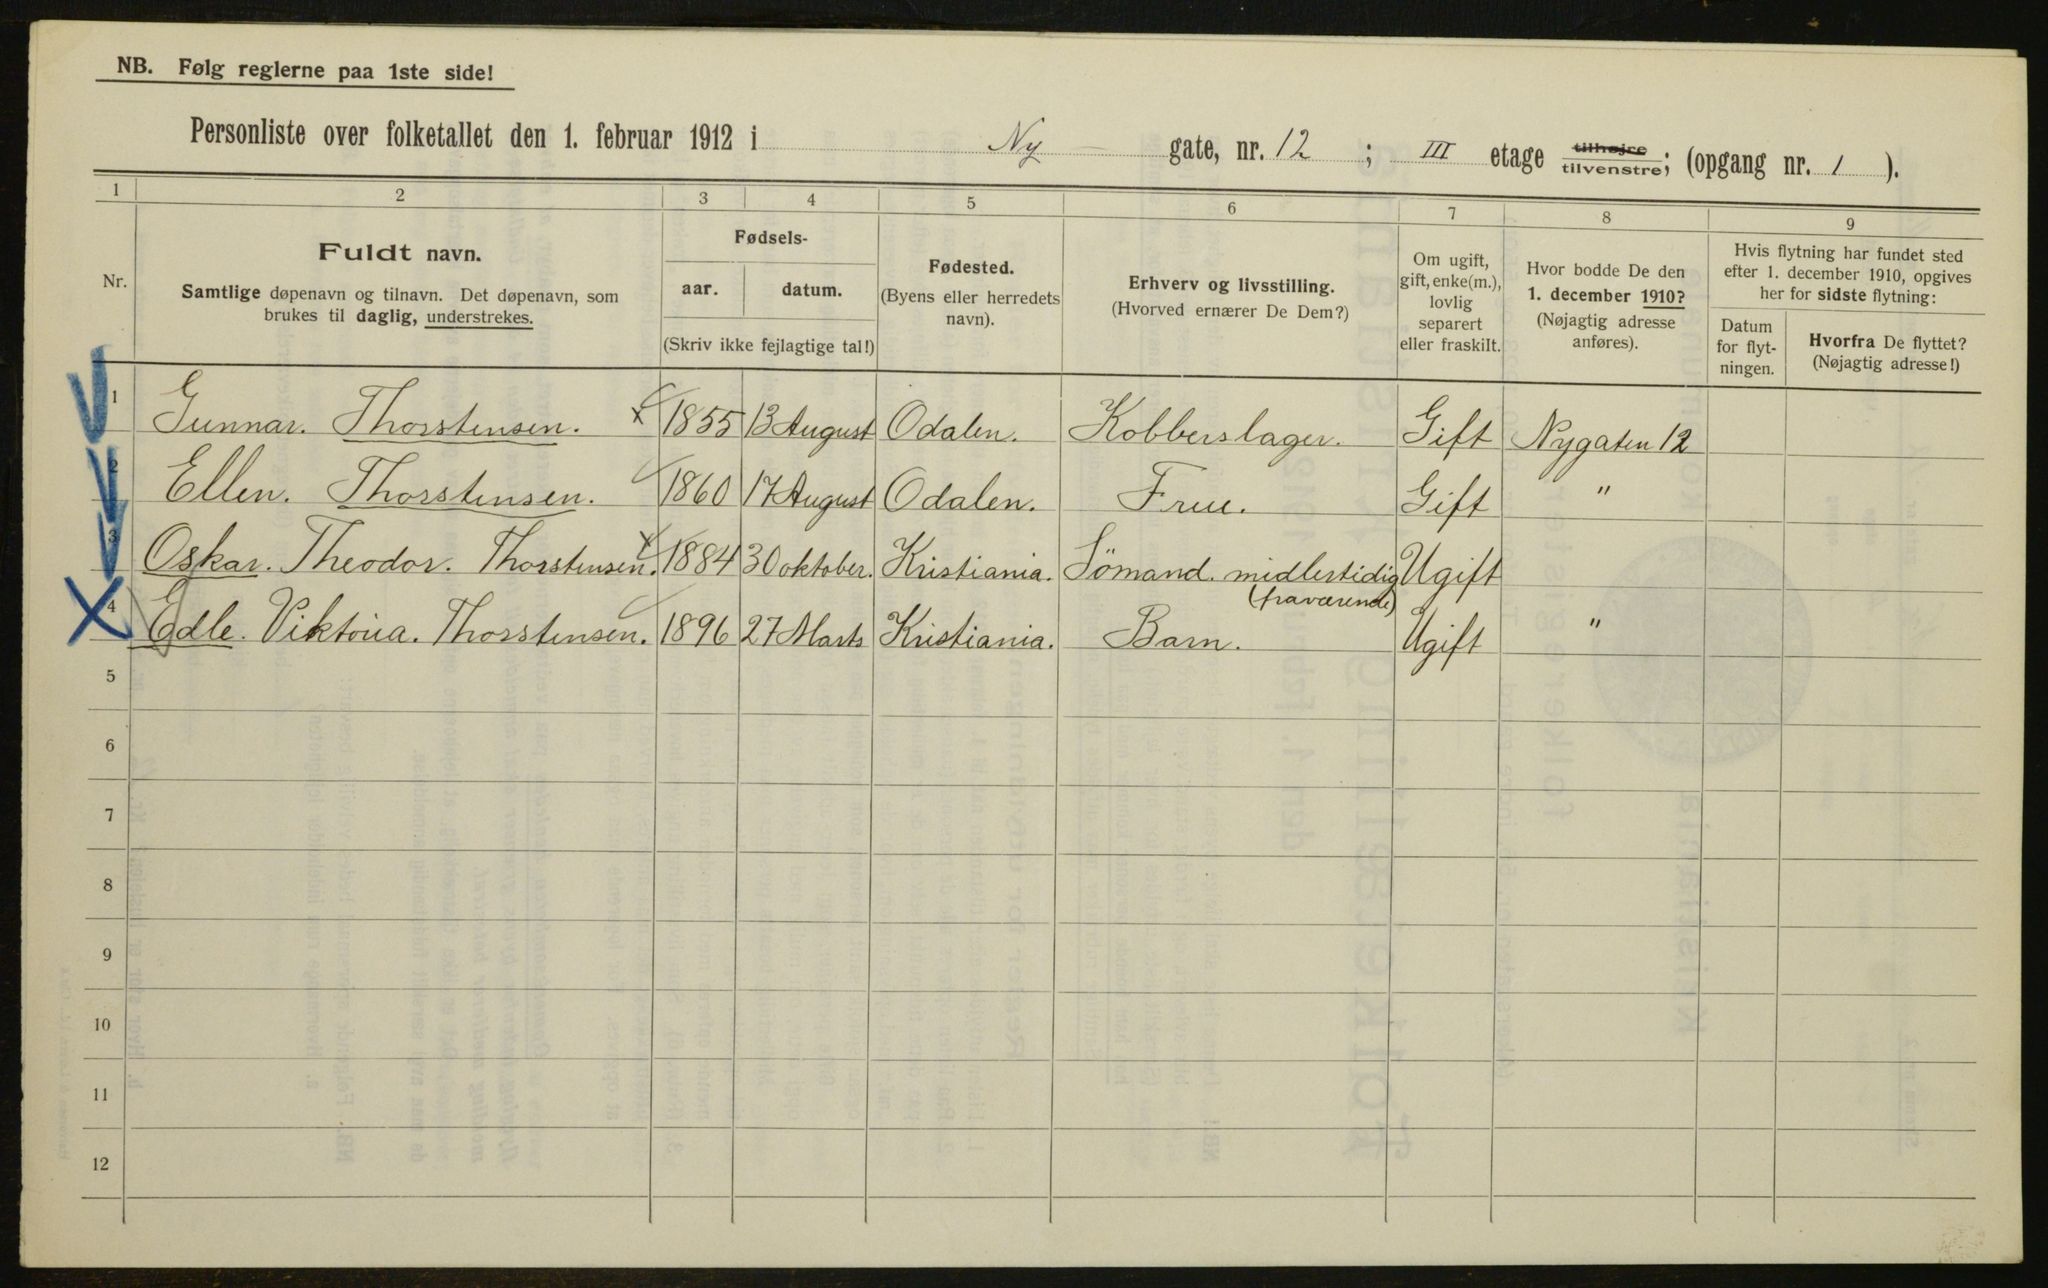 NB. Følg reglerne paa 1ste side!
Personliste over folketallet den 1. februar 1912 i Ny gate, nr. 12 ; III etage tilhøjre tilvenstre; (opgang nr. 1 ).
1 2 3 4 5 6 7 8 9
Nr.
Fuldt navn.
Samtlige døpenavn og tilnavn. Det døpenavn, som
brukes til daglig, understrekes.
Fødsels-
aar. datum.
(Skriv ikke fejlagtige tal!)
Fødested.
(Byens eller herredets
navn).
Erhverv og livsstilling.
(Hvorved ernærer De Dem?)
Om ugift,
gift, enke(m.),
lovlig
separert
eller fraskilt.
Hvor bodde De den
1. december 1910?
(Nøjagtig adresse
anføres).
Hvis flytning har fundet sted
efter 1. december 1910, opgives
her for sidste flytning:
Datum
for flyt-
ningen.
Hvorfra De flyttet?
(Nøjagtig adresse!)
1 Gunnar. Thorstensen. x 1855 13 August Odalen. Kobberslager. Gift Nygaten 12
2 Ellen. Thorstensen. 1860 17 August Odalen. Frue. Gift "
3 Oskar. Theodor. Thorstensen. x 1884 30 oktober. Kristiania. Sömand. midlertidig Ugift
(fraværende)
4 Edle. Viktoria. Thorstensen. 1896 27 Marts Kristiania. Barn. Ugift "
5
6
7
8
9
10
11
12